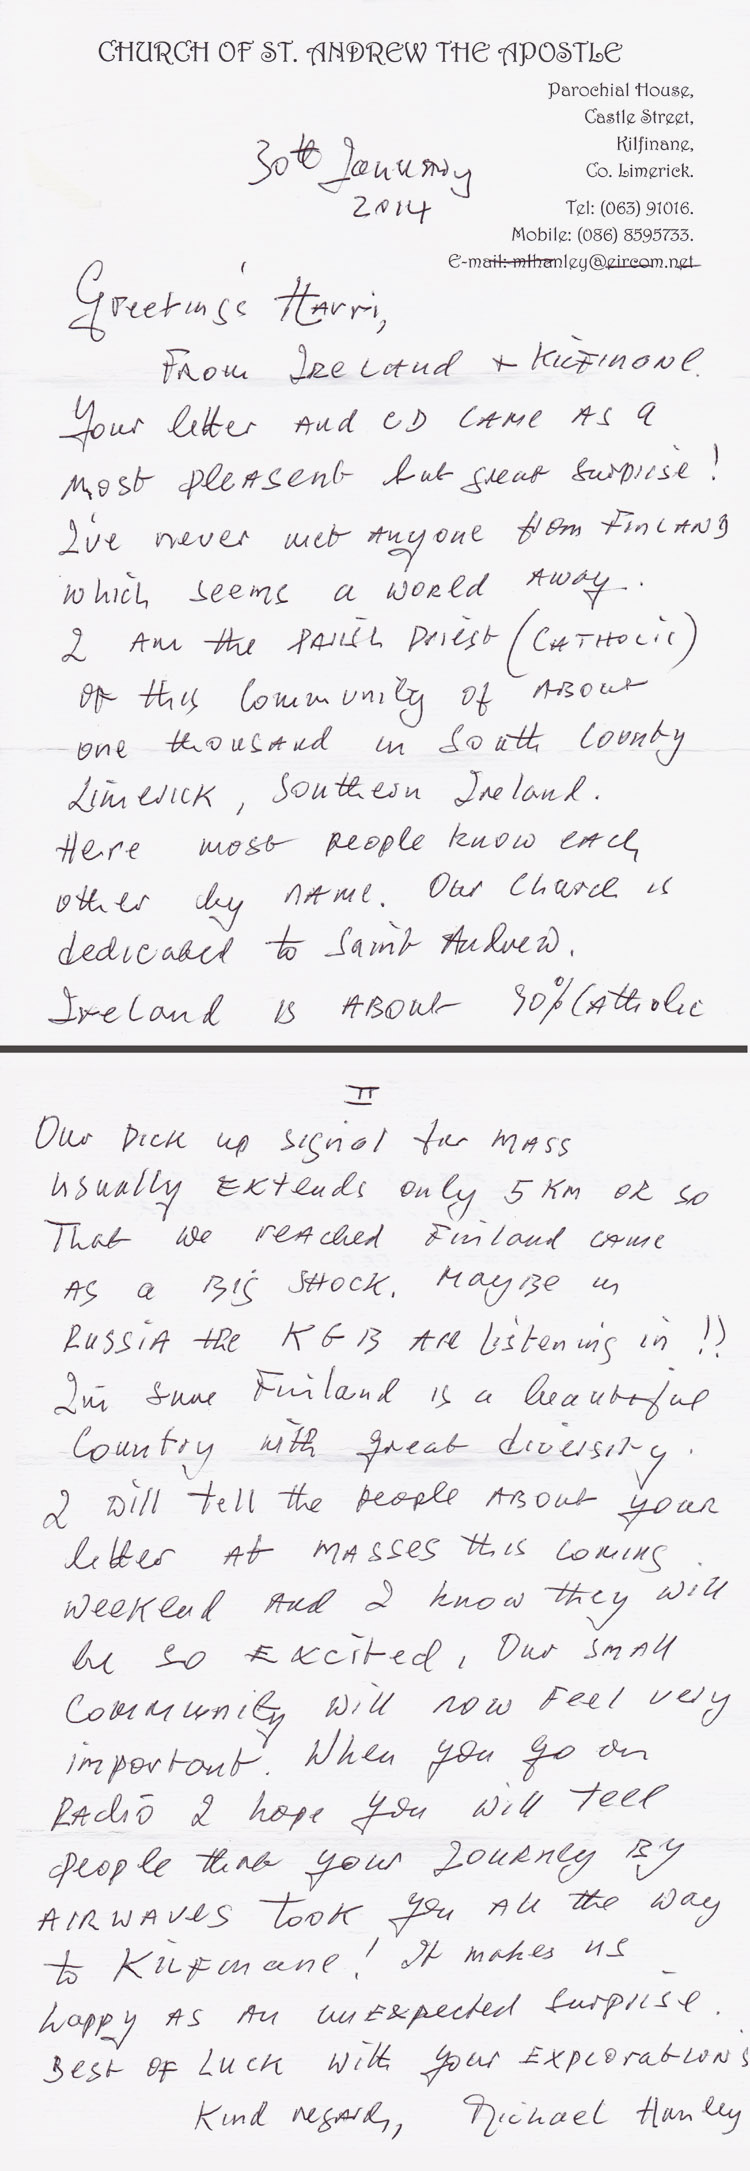 CHURCH OF ST. ANDREW THE APOSTLE
Parochial House,
Castle Street,
Kilfinane,
Co. Limerick.
Tel: (063) 91016.
Mobile: (086) 8595733.
E-mail: mfhanley@eircom.net
30th January
2014
Greeting's Harri,
From IRELAND + KILFINANE.
Your letter AND CD CAME AS A
Most pleasent but great surprise!
I've never met anyone from FINLAND
which seems a world away.
I AM the PARISH Priest (CATHOLIC)
OF this Community of ABOUT
one thousand in South County
Limerick, Southern Ireland.
Here most people know each
other by NAME. Our Church is
dedicated to Saint Andrew.
Ireland is ABOUT 90% Catholic
II
Our pick up signal for MASS
usually Extends only 5 Km OR so
That we reached Finland came
AS a BIG SHOCK. MAYBE in
RUSSIA the KGB ARE listening in !!
I'm sure Finland is a beautiful
Country with great diversity.
I will tell the people ABOUT your
letter At MASSES this coming
weekend AND I know they will
be so Excited, Our small
Community will now Feel very
important. When you go on
RADIO I hope you will tell
people that your JOURNEY By
AIRWAVES TOOK you All the way
to Kilfinane! It makes us
happy AS An unexpected surprise.
Best OF LUCK with your Exploration's
Kind regards, Michael Hanley